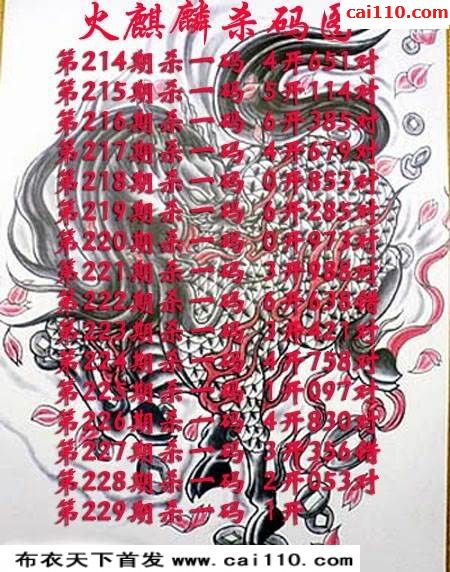 cai110.com
火麒麟杀码图
第214期杀一码 4开651对
第215期杀一码 5开114对
第216期杀一码 6开385对
第217期杀一码 4开679对
第218期杀一码 0开853对
第219期杀一码 6开285对
第220期杀一码 0开973对
第221期杀一码 3开988对
第222期杀一码 6开638错
第223期杀一码 3开421对
第224期杀一码 4开758对
第225期杀一码 1开097对
第226期杀一码 4开830对
第227期杀一码 3开356错
第228期杀一码 2开053对
第229期杀一码 1开
布衣天下首发 www.cai110.com